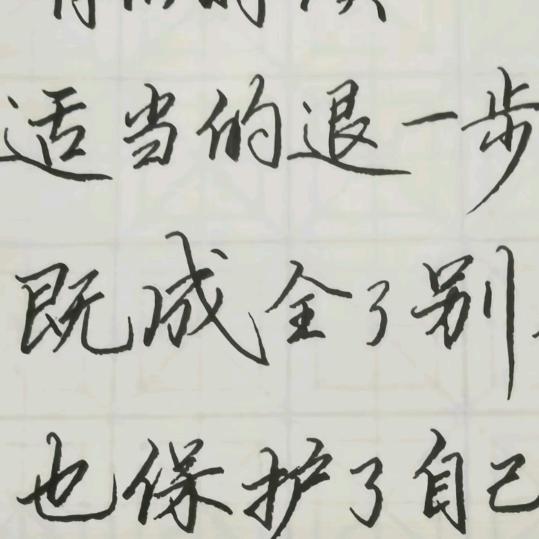 适当的退一步
既成全了别
也保护了自己